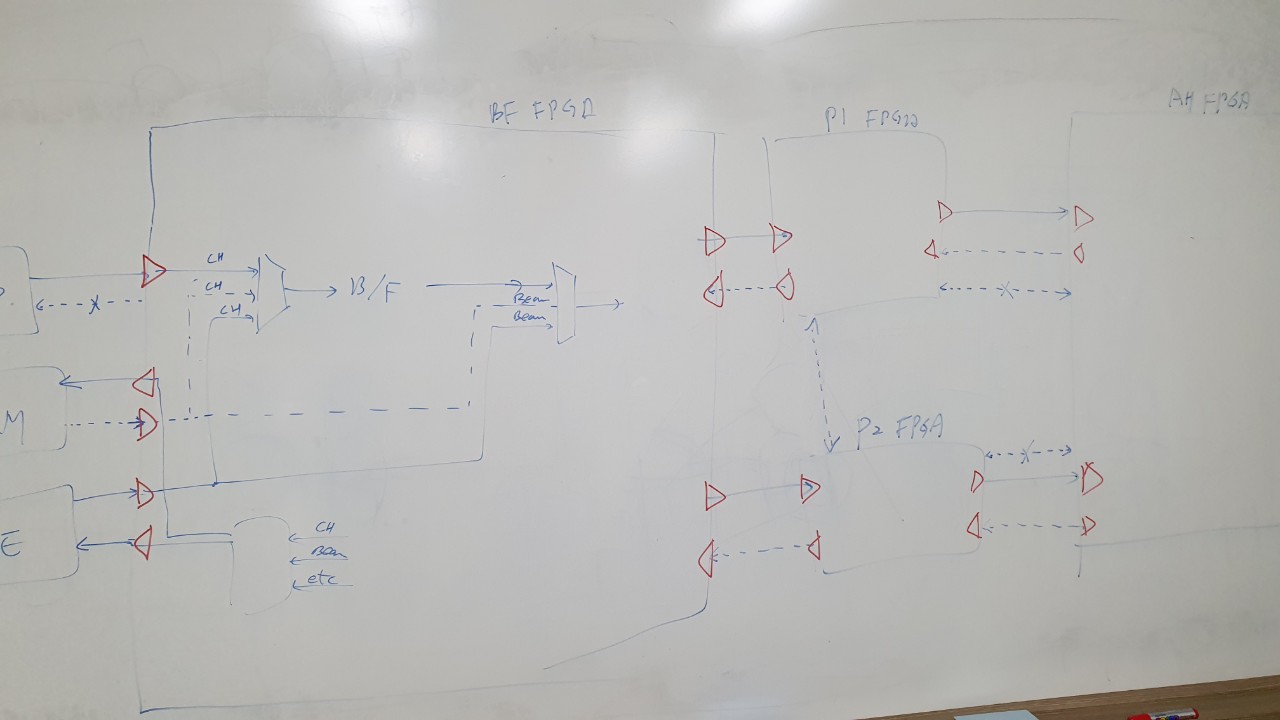 BF FPGA
P1 FPGA
AH FPGA
CH
CH
CH
B/F
Beam
Beam
P.
M
P2 FPGA
E
CH
Beam
etc